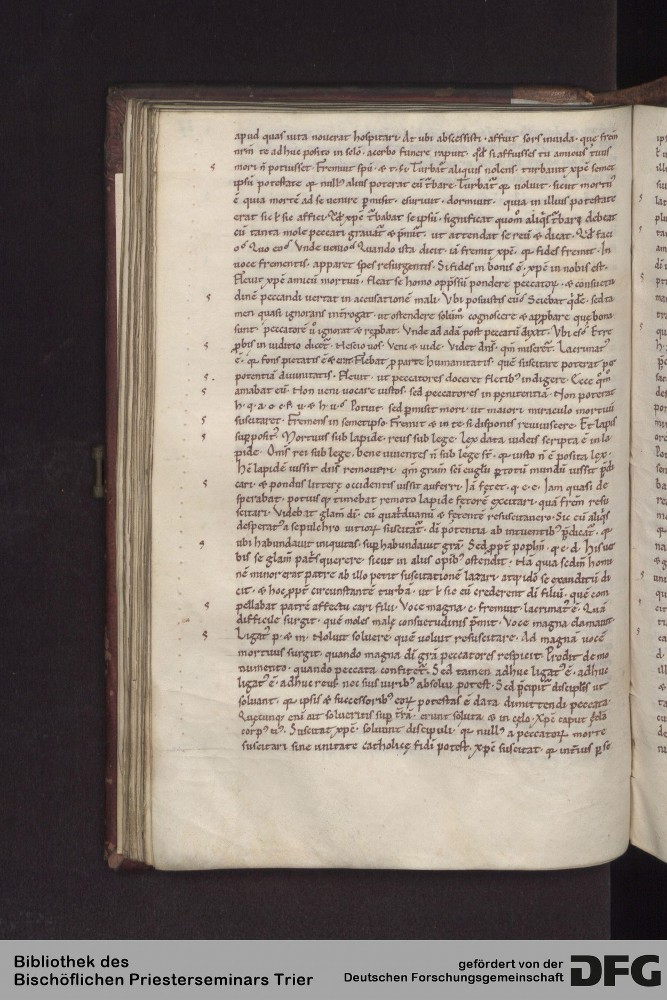 apud quas uita nouerat hospitari. At ubi abscessisti. affuit sors inuida. que frem
nrm te adhuc posito in sclo. acerbo funere rapuit. qd si affuisses tu amicus tuus
mori n potuisset. Fremuit spu. & t. s. Turbat aliquis nolens. turbauit xpc semet
ipsu potestate qr null alius poterat eu turbare. Turbat qr uoluit. sicut mortu
e quia morte ad se uenire pmisit. esuriuit. dormiuit. quia in illius potestate
erat sic l sic affici. Qd xpc turbabat se ipsu. significat quom aliqs turbari debeat
cu tanta mole peccati grauat & pmit. ut attendat se reu & dicat. Qd faci
Quo eo Unde uenio Quando ista dicit. ia fremit xpc. qr fides fremit. In
uoce frementis. apparet spes resurgentis. Si fides in bonis e. xpc in nobis est.
Fleuit xpc amicu mortuu. fleat se homo oppssu pondere peccator. & consuetu
dine peccandi uertat in accusatione mali. Ubi posuistis eu Sciebat qde. sed ta
men quasi ignorans interogat. ut ostendere solu cognoscere & apprbare que bona
sunt. peccatore u ignorat & reprbat. Unde ad ada post peccatu dixit. Ubi es Et re
prbis in iuditio dicet. Nescio uos. Veni & uide. Videt dns. qm miseret. Lacrimat
e. qr fons pietatis e & erat. Flebat p parte humanitatis. que suscitare poterat per
potentia diuinitatis. Fleuit. ut peccatores doceret fletib indigere. Ecce qm
amabat eu. Non ueni uocare iustos. sed peccatores in penitentia. Non poterat
h. q. a. o. c. Potuit. sed pmisit mori. ut maiori miraculo mortuu
suscitaret. Fremens in semetipso. Fremit & in te si disponis reuiuiscere. Et lapis
suppposit. Mortuus sub lapide. reus sub lege. Lex data iudeis scripta e in la
pide. Oms rei sub lege. bene uiuentes n sub lege st. qr iusto n e posita lex.
Hc lapide iussit dns remoueri. qm gram sci euglii p totu mundu iussit predi
cari. & pondus littere occidentis iussit auferri. Ia fetet. q. e. e. Iam quasi de
sperabat. potius qr timebat remoto lapide fetore excitari. qua frem resu
scitari. Videbat glam di. cu quatriduanu & fetente resuscitauero. Sic cu aliqs
desperat a sepulchro uitior suscitat. di potentia ab intuentib predicat. qr
ubi habundauit iniquitas. suphabundauit gra. Sed ppt poplm. q. e. d. His uer
bis se glam patris querere. sicut in aliis opib ostendit. Na quia scdm homi
ne minor erat patre ab illo petit suscitatione lazari. atq ido se exauditu di
cit. & hoc ppt circunstante turba. ut l sic eu crederent di filiu. que com
pellabat patre affectu cari filii. Voce magna. c. fremuit. lacrimat e. Qua
difficile surgit. que moles male consuetudinis pmit. Voce magna clamauit.
Ligat p. & m. Noluit soluere. que uoluit resuscitare. Ad magna uoce
mortuus surgit. quando magna di gra peccatores respicit. Prodit de mo
numento. quando peccata confitet. Sed tamen adhuc ligat e. adhuc
ligat e. adhuc reus. nec suis uirib absolui potest. Sed precipit disciplis ut
soluant. qr ipsis & successorib eor potestas e data dimittendi peccata.
Quecunq eni ait solueritis sup tra. erunt soluta & in celo. Xpc caput.
corp ei. Suscitat xpc. soluunt discipuli. qr null a peccator morte
suscitari sine unitate catholice fidi potest. xpc suscitat. qr interius p se
Bibliothek des
Bischöflichen Priesterseminars Trier
gefördert von der
Deutschen Forschungsgemeinschaft
DFG